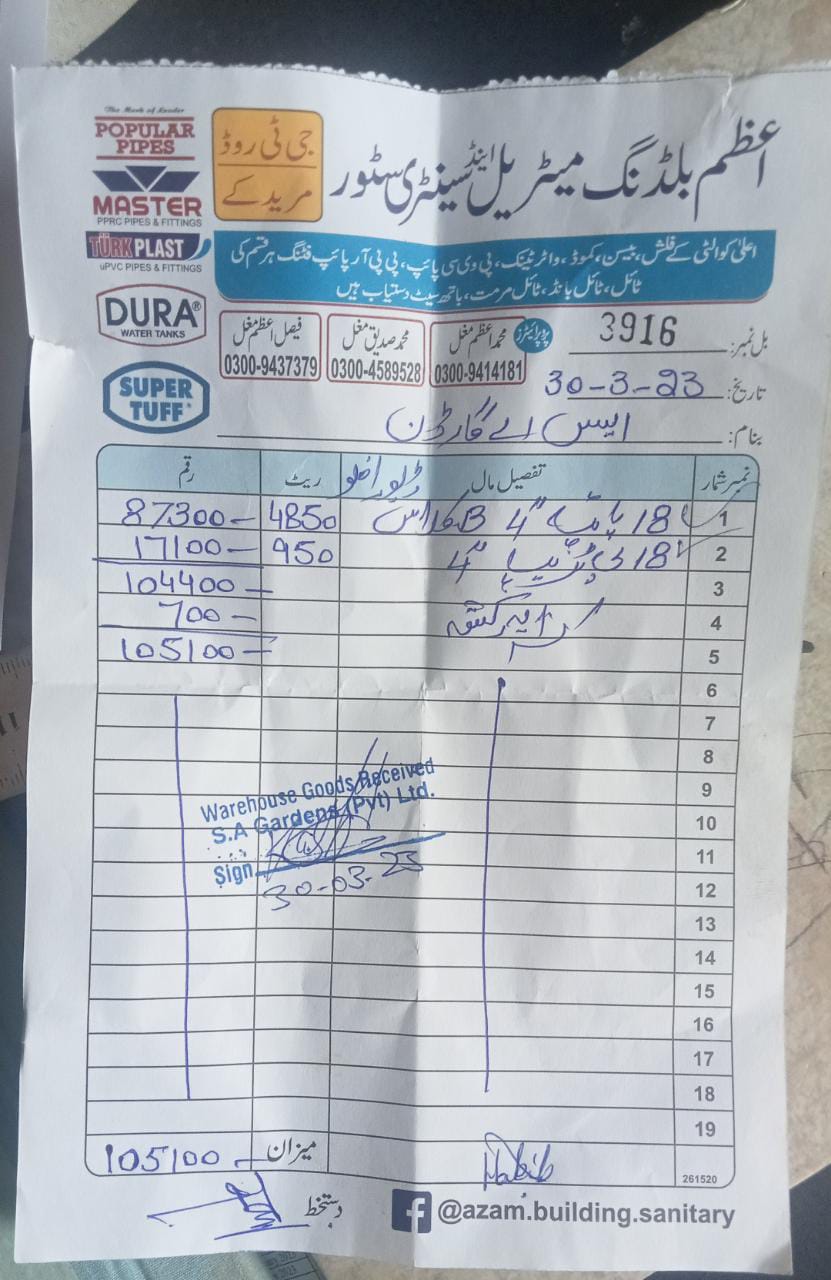 The Mark of Leader
POPULAR
PIPES
MASTER
PPRC PIPES & FITTINGS
TÜRK PLAST
uPVC PIPES & FITTINGS
DURA®
WATER TANKS
SUPER
TUFF
جی ٹی روڈ
مریدکے
اعظم بلڈنگ میٹریل اینڈ سینٹری سٹور
اعلیٰ کوالٹی کے فلش، بیسن، کموڈ، واٹر ٹینک، پی وی سی پائپ، پی پی آر پائپ فٹنگ ہر قسم کی
ٹائل، ٹائل بانڈ، ٹائل مرمت، باتھ سیٹ دستیاب ہیں
پروپرائیٹرز
محمد اعظم مغل
0300-9414181
محمد صدیق مغل
0300-4589528
فیصل اعظم مغل
0300-9437379
بل نمبر: 3916
تاریخ: 30-3-23
بنام: ایس اے گارڈن
نمبر شمار تفصیل مال ریٹ رقم
1 18 پائپ 4" B کلاس 4850 87300-
2 18 4" 950 17100-
3 104400-
4 700-
5 105100-
6
7
8
9
10
11
12
13
14
15
16
17
18
19
Warehouse Goods Received
S.A Gardens (Pvt) Ltd.
Sign
30-03-23
میزان 105100-
261520
دستخط
@azam.building.sanitary